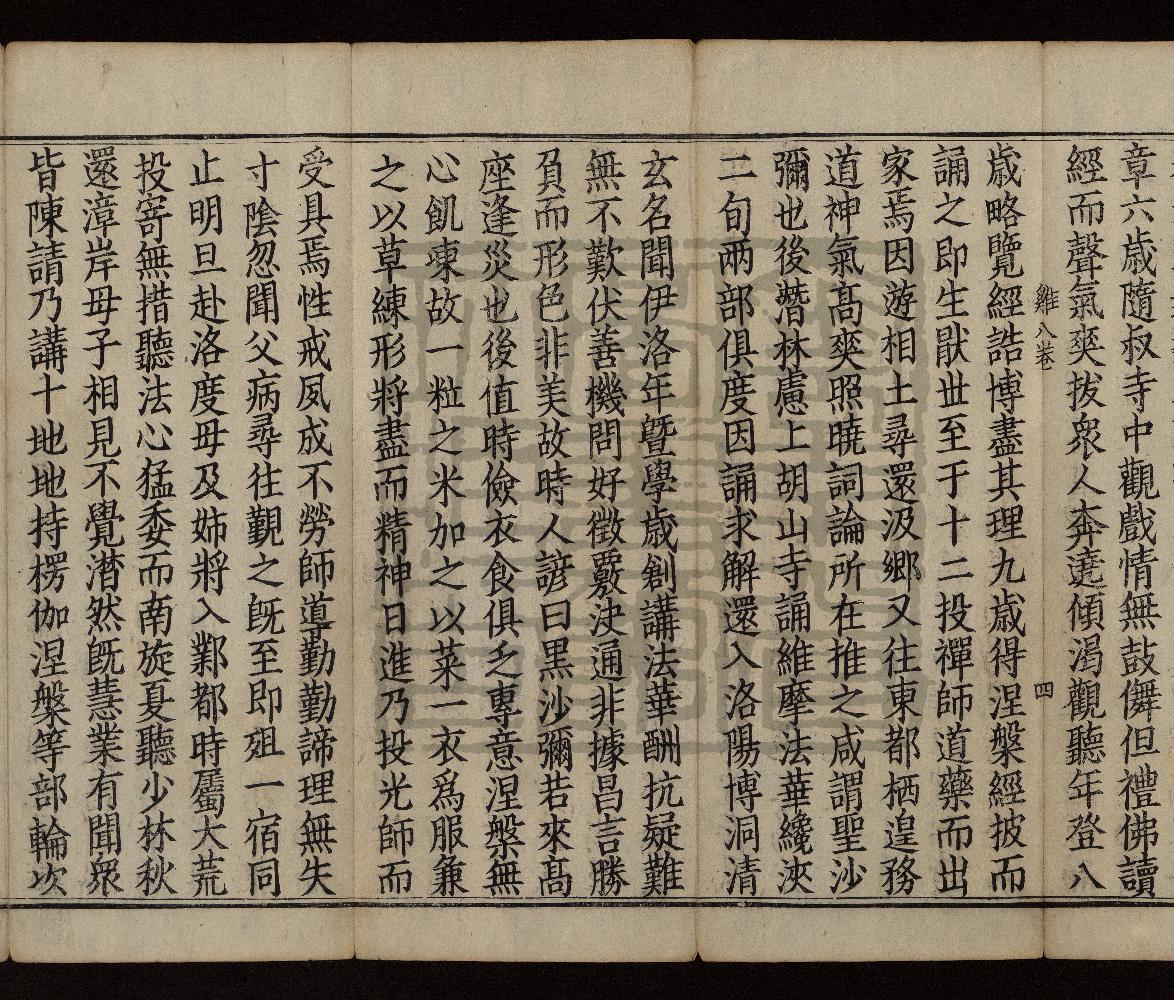 章六歲隨叔寺中觀戲情無鼓儛但禮佛讀
經而聲氣爽拔衆人奔遶傾渴觀聽年登八
雞八卷 四
歲略覽經誥博盡其理九歲得涅槃經披而
誦之即生猒丗至于十二投禪師道藥而出
家焉因遊相土尋還汲鄉又往東都栖遑務
道神氣髙爽照曉詞論所在推之咸謂聖沙
彌也後潛林慮上胡山寺誦維摩法華纔浹
二旬兩部俱度因誦求解還入洛陽博洞清
玄名聞伊洛年暨學歲創講法華酬抗疑難
無不歎伏善機問好徵覈決通非據昌言勝
負而形色非美故時人諺曰黑沙彌若來髙
座逢災也後值時儉衣食俱乏專意涅槃無
心飢凍故一粒之米加之以菜一衣爲服兼
之以草練形將盡而精神日進乃投光師而
受具焉性戒夙成不勞師導勤勤諦理無失
寸陰忽聞父病尋往覲之旣至即殂一宿同
止明旦赴洛度母及姊將入鄴都時屬大荒
投寄無措聽法心猛委而南旋夏聽少林秋
還漳岸母子相見不覺潸然旣慧業有聞衆
皆陳請乃講十地地持楞伽涅槃等部輪次